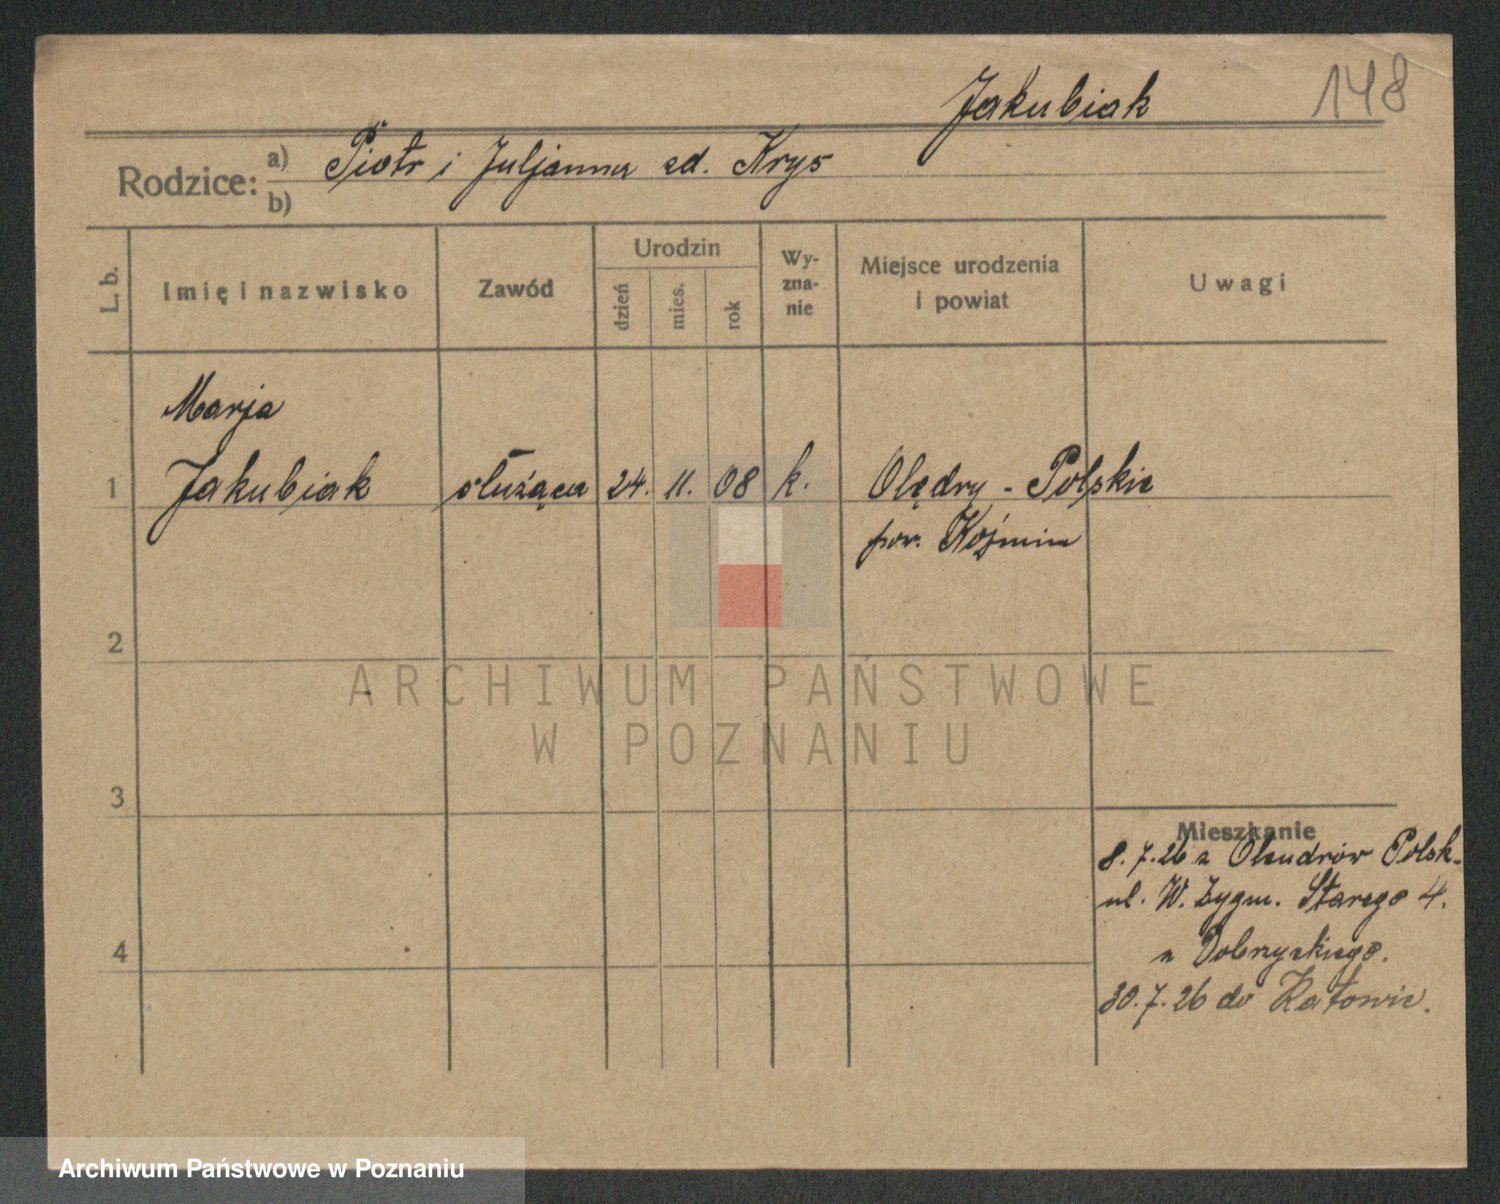 148
Jakubiak
Rodzice: a) Piotr i Juljanna zd. Krys
b)
L. b.
Imię i nazwisko
Zawód
Urodzin
dzień
mies.
rok
Wy-
zna-
nie
Miejsce urodzenia
i powiat
Uwagi
Marja
1 Jakubiak służąca 24. 11. 08 k. Olędry - Polskie
pow. Koźmin
2
3
4
Mieszkanie
8.7.26 z Olendrów Polsk.
ul. W. Zygm. Starego 4.
u Dobrzyckiego.
30.7.26 do Katowic.
ARCHIWUM PAŃSTWOWE
W POZNANIU
Archiwum Państwowe w Poznaniu